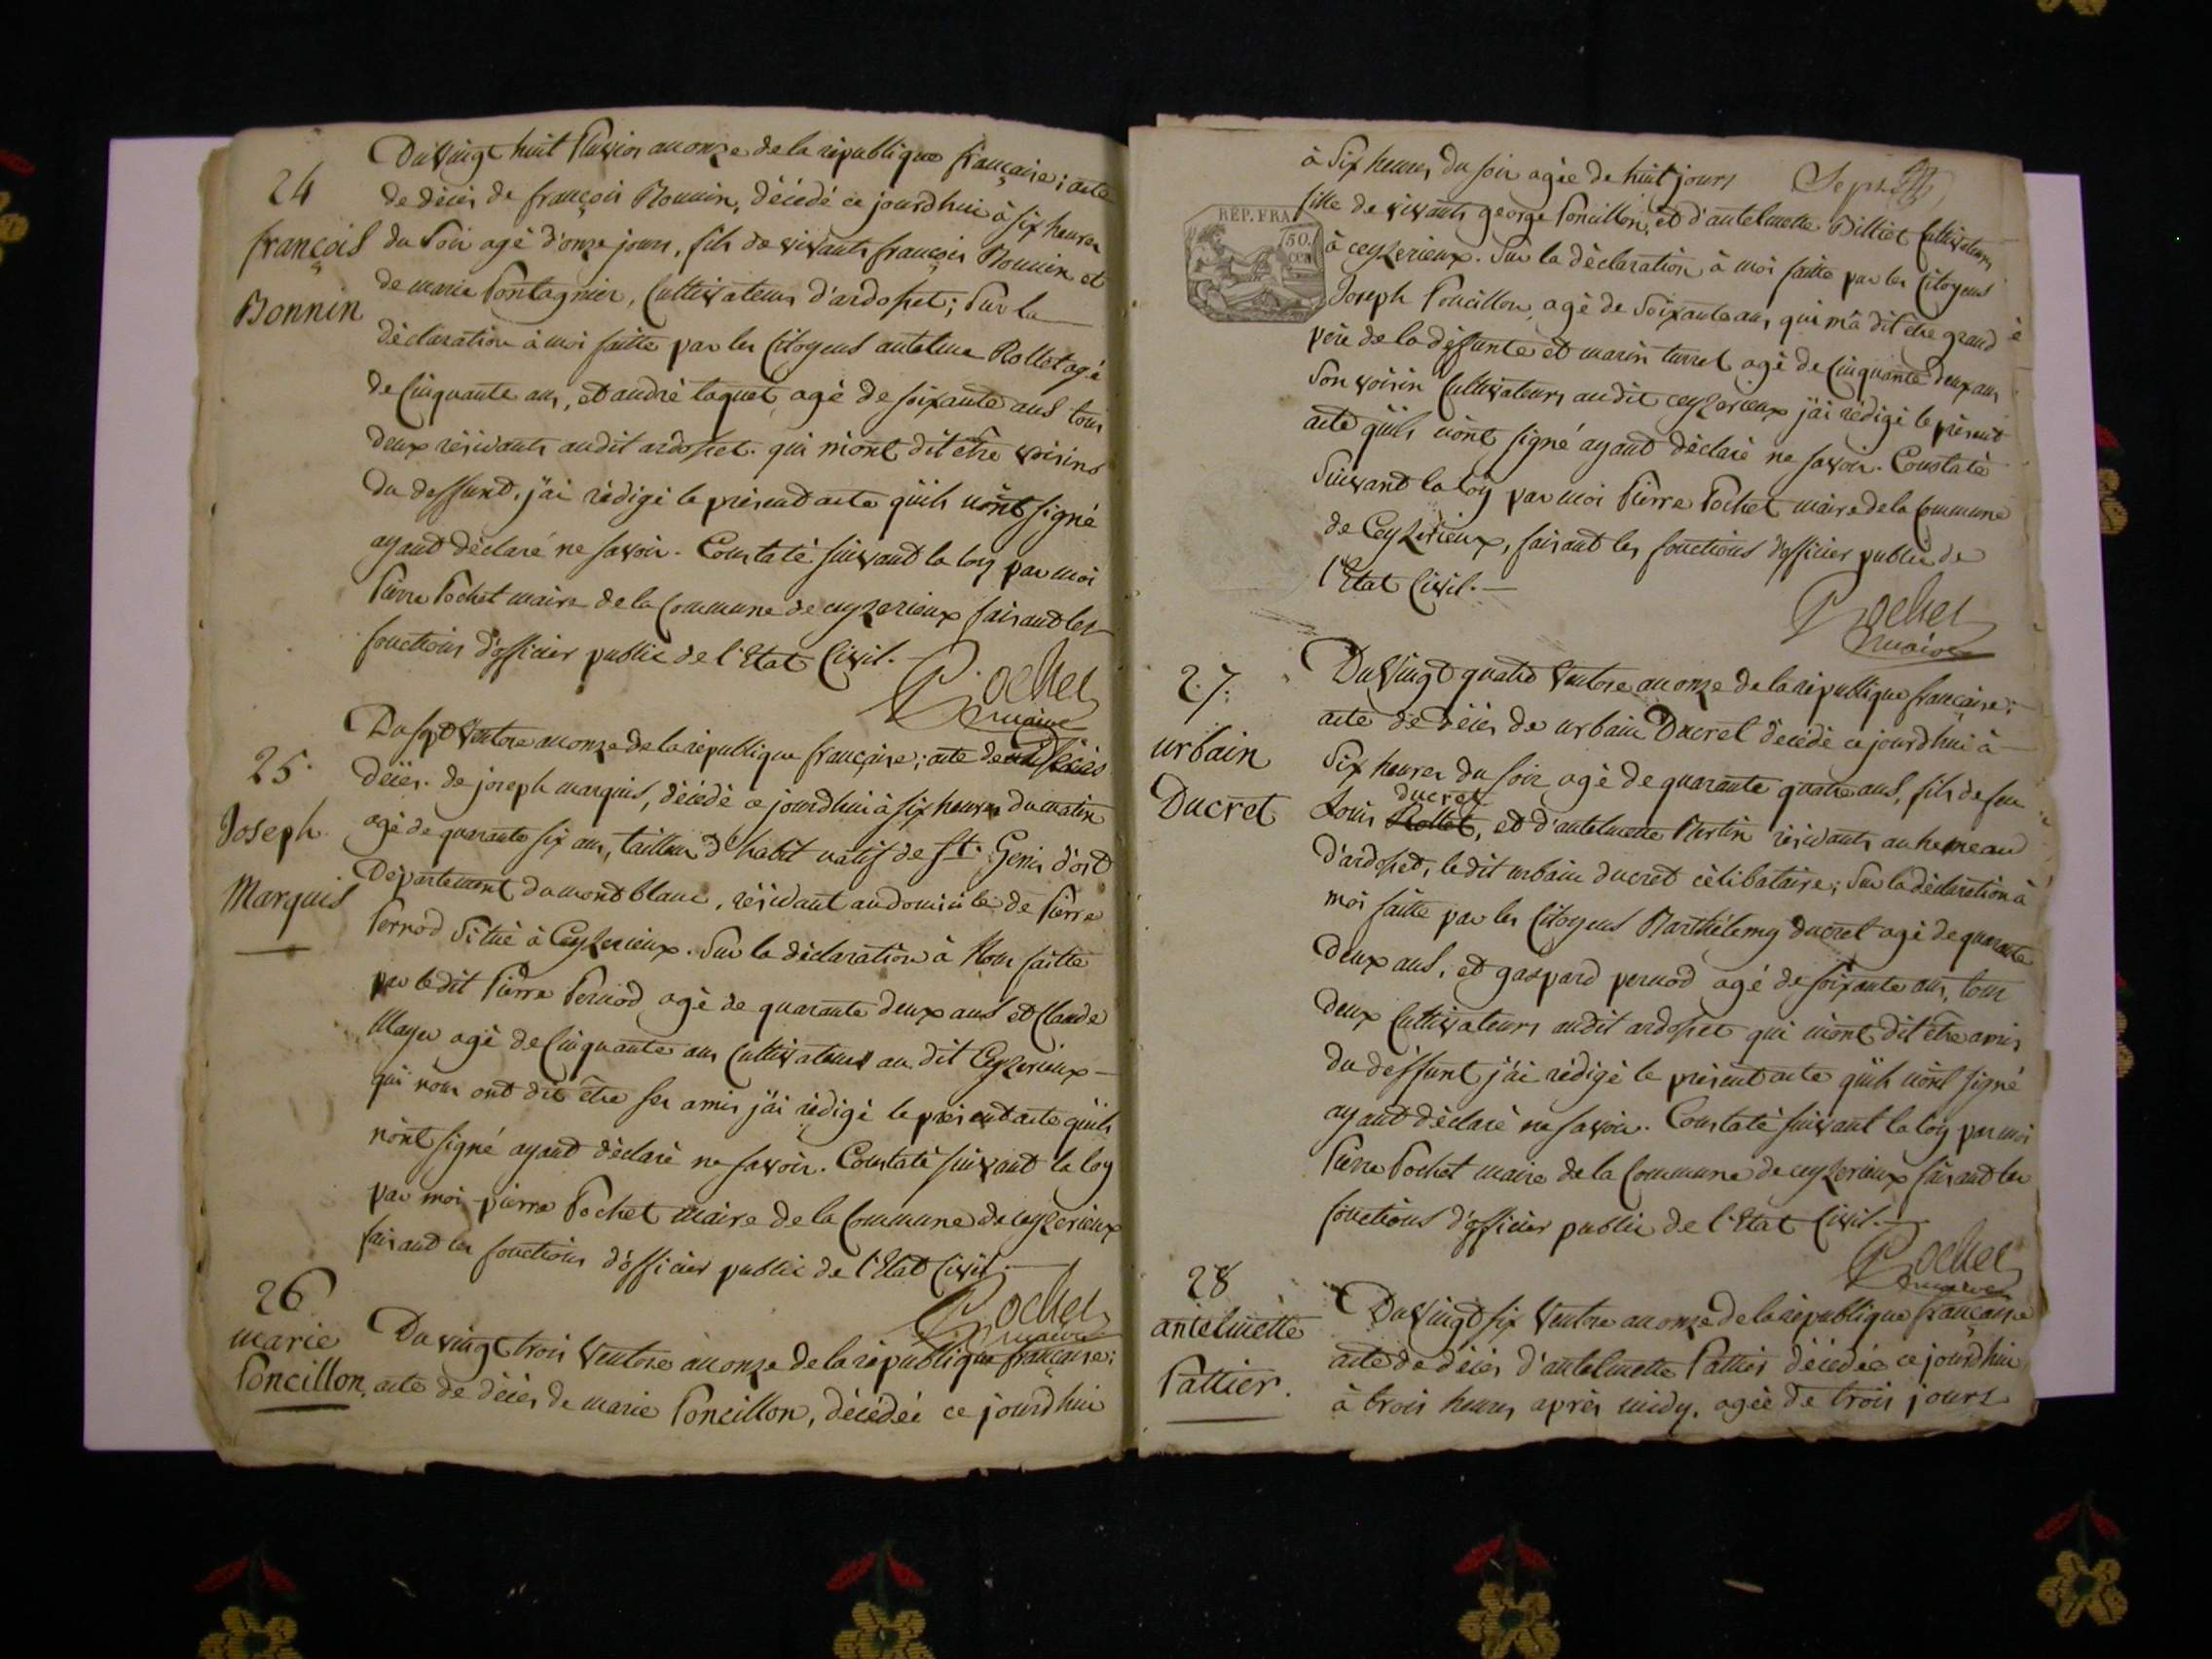 24
françois
Bonnin
Du vingt huit Pluvios an onze de la république française; acte
de décès de françois Bonnin, décédé ce jourdhui à six heures
du Soir agé d'onze jours, fils de vivants françois Bonnin et
de marie Pontagnier, Cultivateurs d'ardosset; Sur la
déclaration à moi faitte par les Citoyens antelme Rollet agé
de Cinquante ans, et andré taquet agé de soixante ans tous
deux résidants audit ardosset. qui m'ont dit être voisins
du deffunt, j'ai rédigé le présent acte qu'ils n'ont signé
ayant déclaré ne savoir. Constaté suivant la loy par moi
Pierre Pochet maire de la Commune de ceyzerieux faisant les
fonctions d'officier public de l'Etat Civil.
Pochet
maire
25.
Joseph
Marquis
Du sept Ventose an onze de la république française; acte de
décès. de joseph marquis, décédé ce jourdhui à six heures du matin
agé de quarante six ans, tailleur d'habit natif de St. Genis d'ost
Département du mont blanc, résidant au domicile de Pierre
Pernod Situé à Ceyzerieux. Sur la déclaration à Nous faitte
par ledit Pierre Pernod agé de quarante deux ans et Claude
Mayer agé de Cinquante ans Cultivateurs au dit Ceyzerieux
qui nous ont dit être ses amis j'ai rédigé le présent acte qu'ils
n'ont signé ayant déclaré ne savoir. Constaté suivant la loy
par moi pierre Pochet Maire de la Commune de ceyzerieux
faisant les fonctions d'officier public de l'Etat Civil.
Pochet
maire
26
marie
Poncillon
Du vingt trois Ventose an onze de la république française;
acte de décès de marie Poncillon, décédée ce jourdhui
à Six heures du soir agée de huit jours
REP. FRA
50.
cen
fille de vivants george Poncillon, et d'antelmette Billiet Cultivateurs
à ceyzerieux. Sur la déclaration à moi faitte par les Citoyens
Joseph Poncillon, agé de Soixante ans, qui m'a dit être grand
père de la déffunte et marin turrel agé de Cinquante deux ans
Son voisin Cultivateurs audit ceyzerieux j'ai rédigé le présent
acte qu'ils n'ont signé ayant déclaré ne savoir. Constaté
Suivant la loy par moi Pierre Pochet maire de la Commune
de Ceyzerieux, faisant les fonctions d'officier public de
l'Etat Civil.
Pochet
maire
27.
urbain
Ducret
Du Vingt quatre Ventose an onze de la république française;
acte de décès de urbain Ducret décédé ce jourdhui à
Six heures du soir agé de quarante quatre ans, fils de feu
ducret
Louis Rollet, et d'antelmette Martin résidants au hameau
d'ardosset, ledit urbain ducret célibataire; Sur la déclaration à
moi faitte par les Citoyens Barthélemy ducret agé de quarante
deux ans, et gaspard pernod agé de soixante ans, tous
deux Cultivateurs audit ardosset qui m'ont dit être amis
du déffunt j'ai rédigé le présent acte qu'ils n'ont signé
ayant déclaré ne savoir. Constaté suivant la loy par moi
Pierre Pochet maire de la Commune de ceyzerieux faisant les
fonctions d'officier public de l'Etat Civil.
Pochet
maire
28
antelmette
Pattier.
Du Vingt six Ventose an onze de la république française
acte de décès d'antelmette Pattier décédée ce jourdhui
à trois heures après midy. agée de trois jours